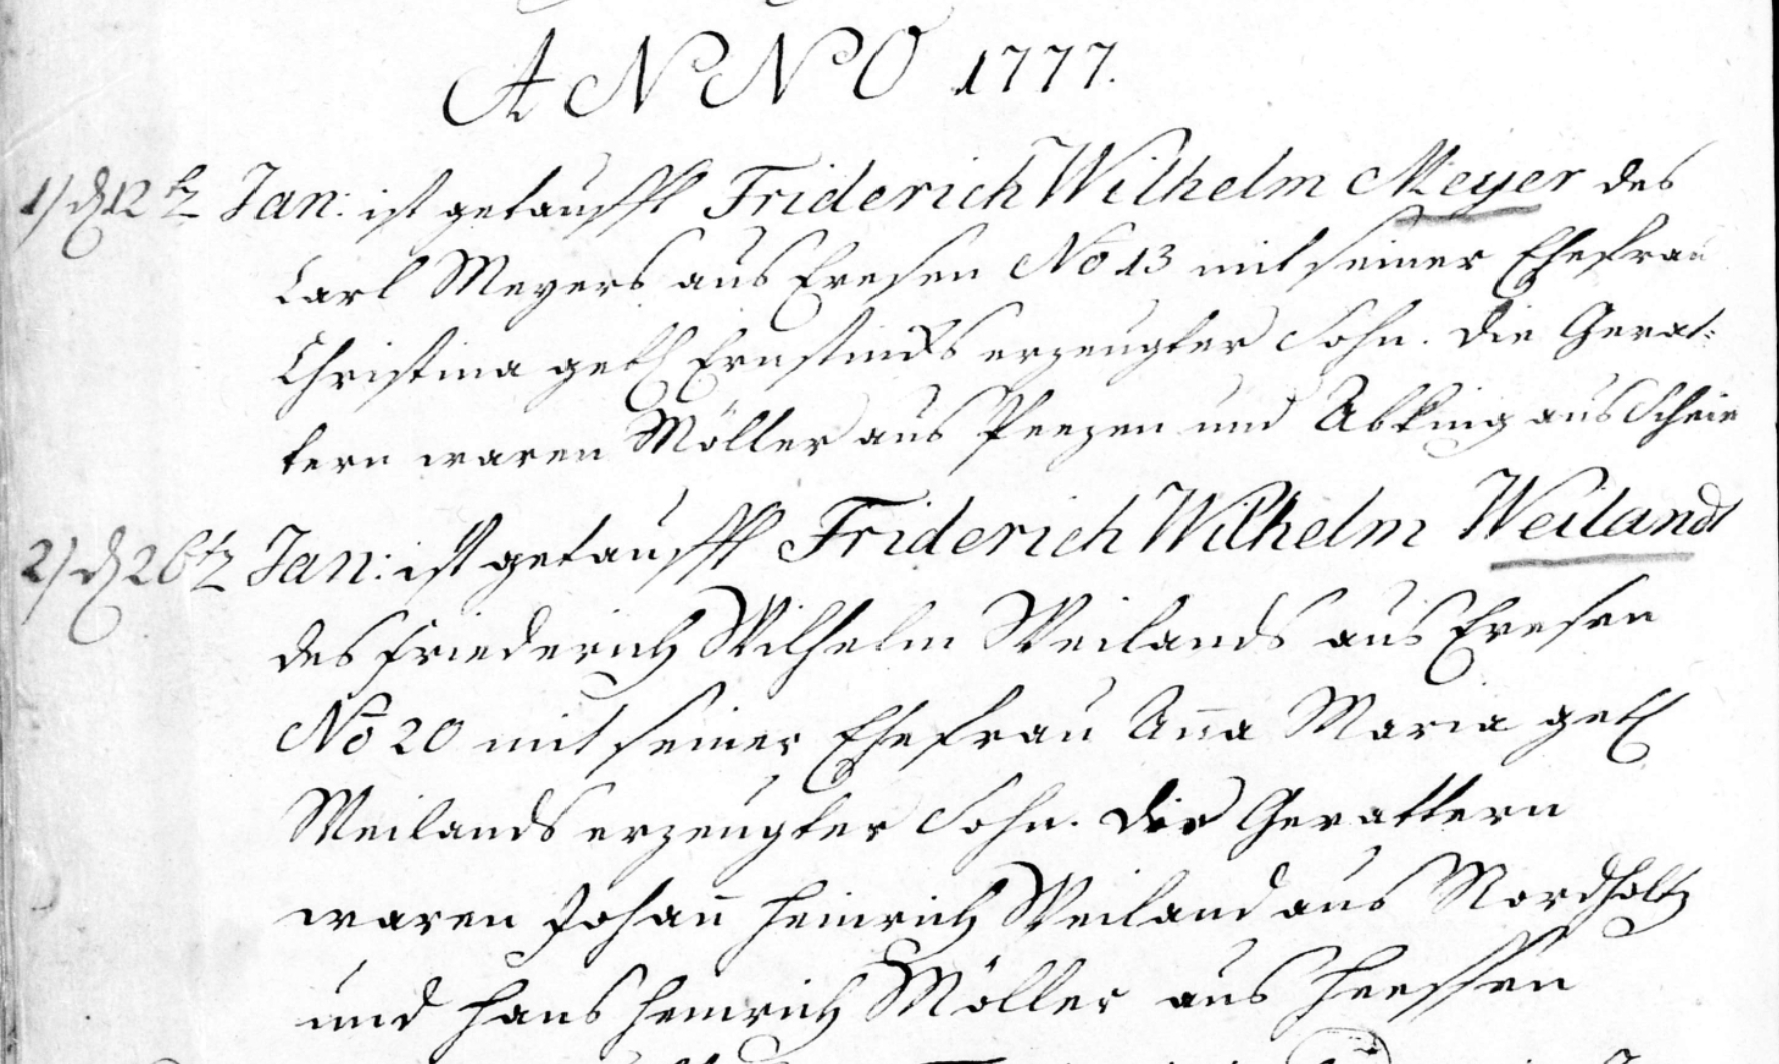 ANNO 1777.
1) d 12 t Jan: ist getaufft Friderich Wilhelm Meyer des
Carl Meyers aus Evesen No 13 mit seiner Ehefrau
Christina geb Ernstings erzeugter Sohn. Die Gevat=
tern waren Möller aus Peezen und Abking aus Scheie
2) d 26 t Jan: ist getaufft Friderich Wilhelm Weilandt
des Friederich Wilhelm Weilands aus Evesen
No 20 mit seiner Ehefrau Aña Maria geb
Weilands erzeugter Sohn. Die Gevattern
waren Johañ Heinrich Weiland aus Nordholtz
und Hans Heinrich Möller aus Heessen